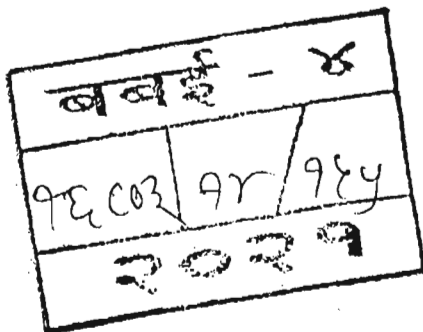 बबई - ४
१६८०३ १४ १६५
२०२१